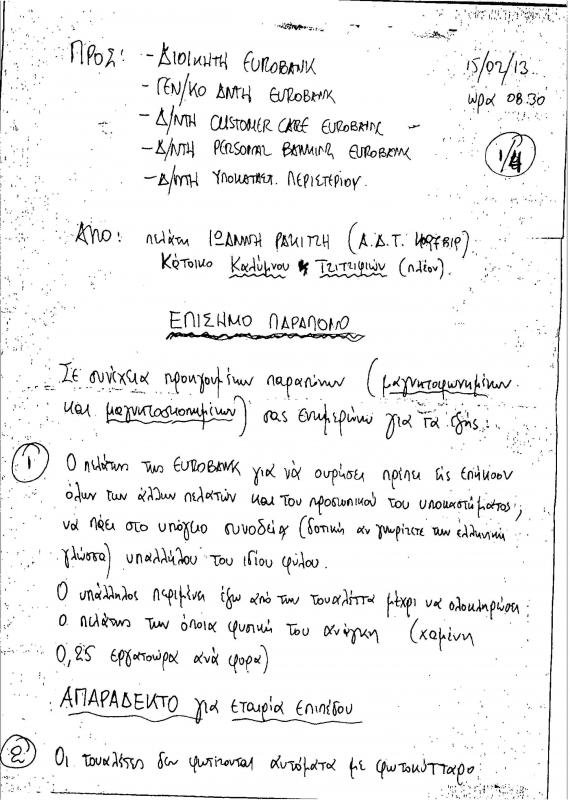 ΠΡΟΣ: - ΔΙΟΙΚΗΤΗ EUROBANK
- ΓΕΝ/ΚΟ ΔΝΤΗ EUROBANK
- Δ/ΝΤΗ CUSTOMER CARE EUROBANK
- Δ/ΝΤΗ PERSONAL BANKING EUROBANK
- Δ/ΝΤΗ ΥΠΟΚΑΤΑΣΤ. ΠΕΡΙΣΤΕΡΙΟΥ.
15/02/13
ώρα 08.30
1/4
ΑΠΟ: πελάτη ΙΩΑΝΝΗ ΡΑΚΙΤΖΗ (Α.Δ.Τ.)
Κάτοικο Καλύμνου & Τζιτζιφιών (πλέον).
ΕΠΙΣΗΜΟ ΠΑΡΑΠΟΝΟ
Σε συνέχεια προηγουμένων παραπόνων (μαγνητοφωνημένων
και μαγνητοσκοπημένων) σας ενημερώνω για τα εξής:
1 Ο πελάτης της EUROBANK για να ουρήσει πρέπει εις επήκοον
όλων των άλλων πελατών και του προσωπικού του υποκαστήματος,
να πάει στο υπόγειο συνοδεία (δοτική αν γνωρίζετε την ελληνική
γλώσσα) υπαλλήλου του ιδίου φύλου.
Ο υπάλληλος περιμένει έξω από την τουαλέττα μέχρι να ολοκληρώσει
ο πελάτης την όποια φυσική του ανάγκη (χαμένη
0,25 εργατοώρα ανά φορά)
ΑΠΑΡΑΔΕΚΤΟ για εταιρία επιπέδου
2 Οι τουαλέτες δεν φωτίζονται αυτόματα με φωτοκύτταρο